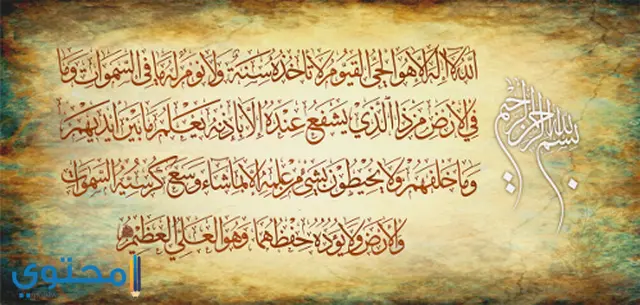 بسم الله الرحمن الرحيم
الله لا إله إلا هو الحي القيوم لا تأخذه سنة ولا نوم له ما في السموات وما
في الأرض من ذا الذي يشفع عنده إلا بإذنه يعلم ما بين أيديهم
وما خلفهم ولا يحيطون بشيء من علمه إلا بما شاء وسع كرسيه السموات
والأرض ولا يؤده حفظهما وهو العلي العظيم
محتوي